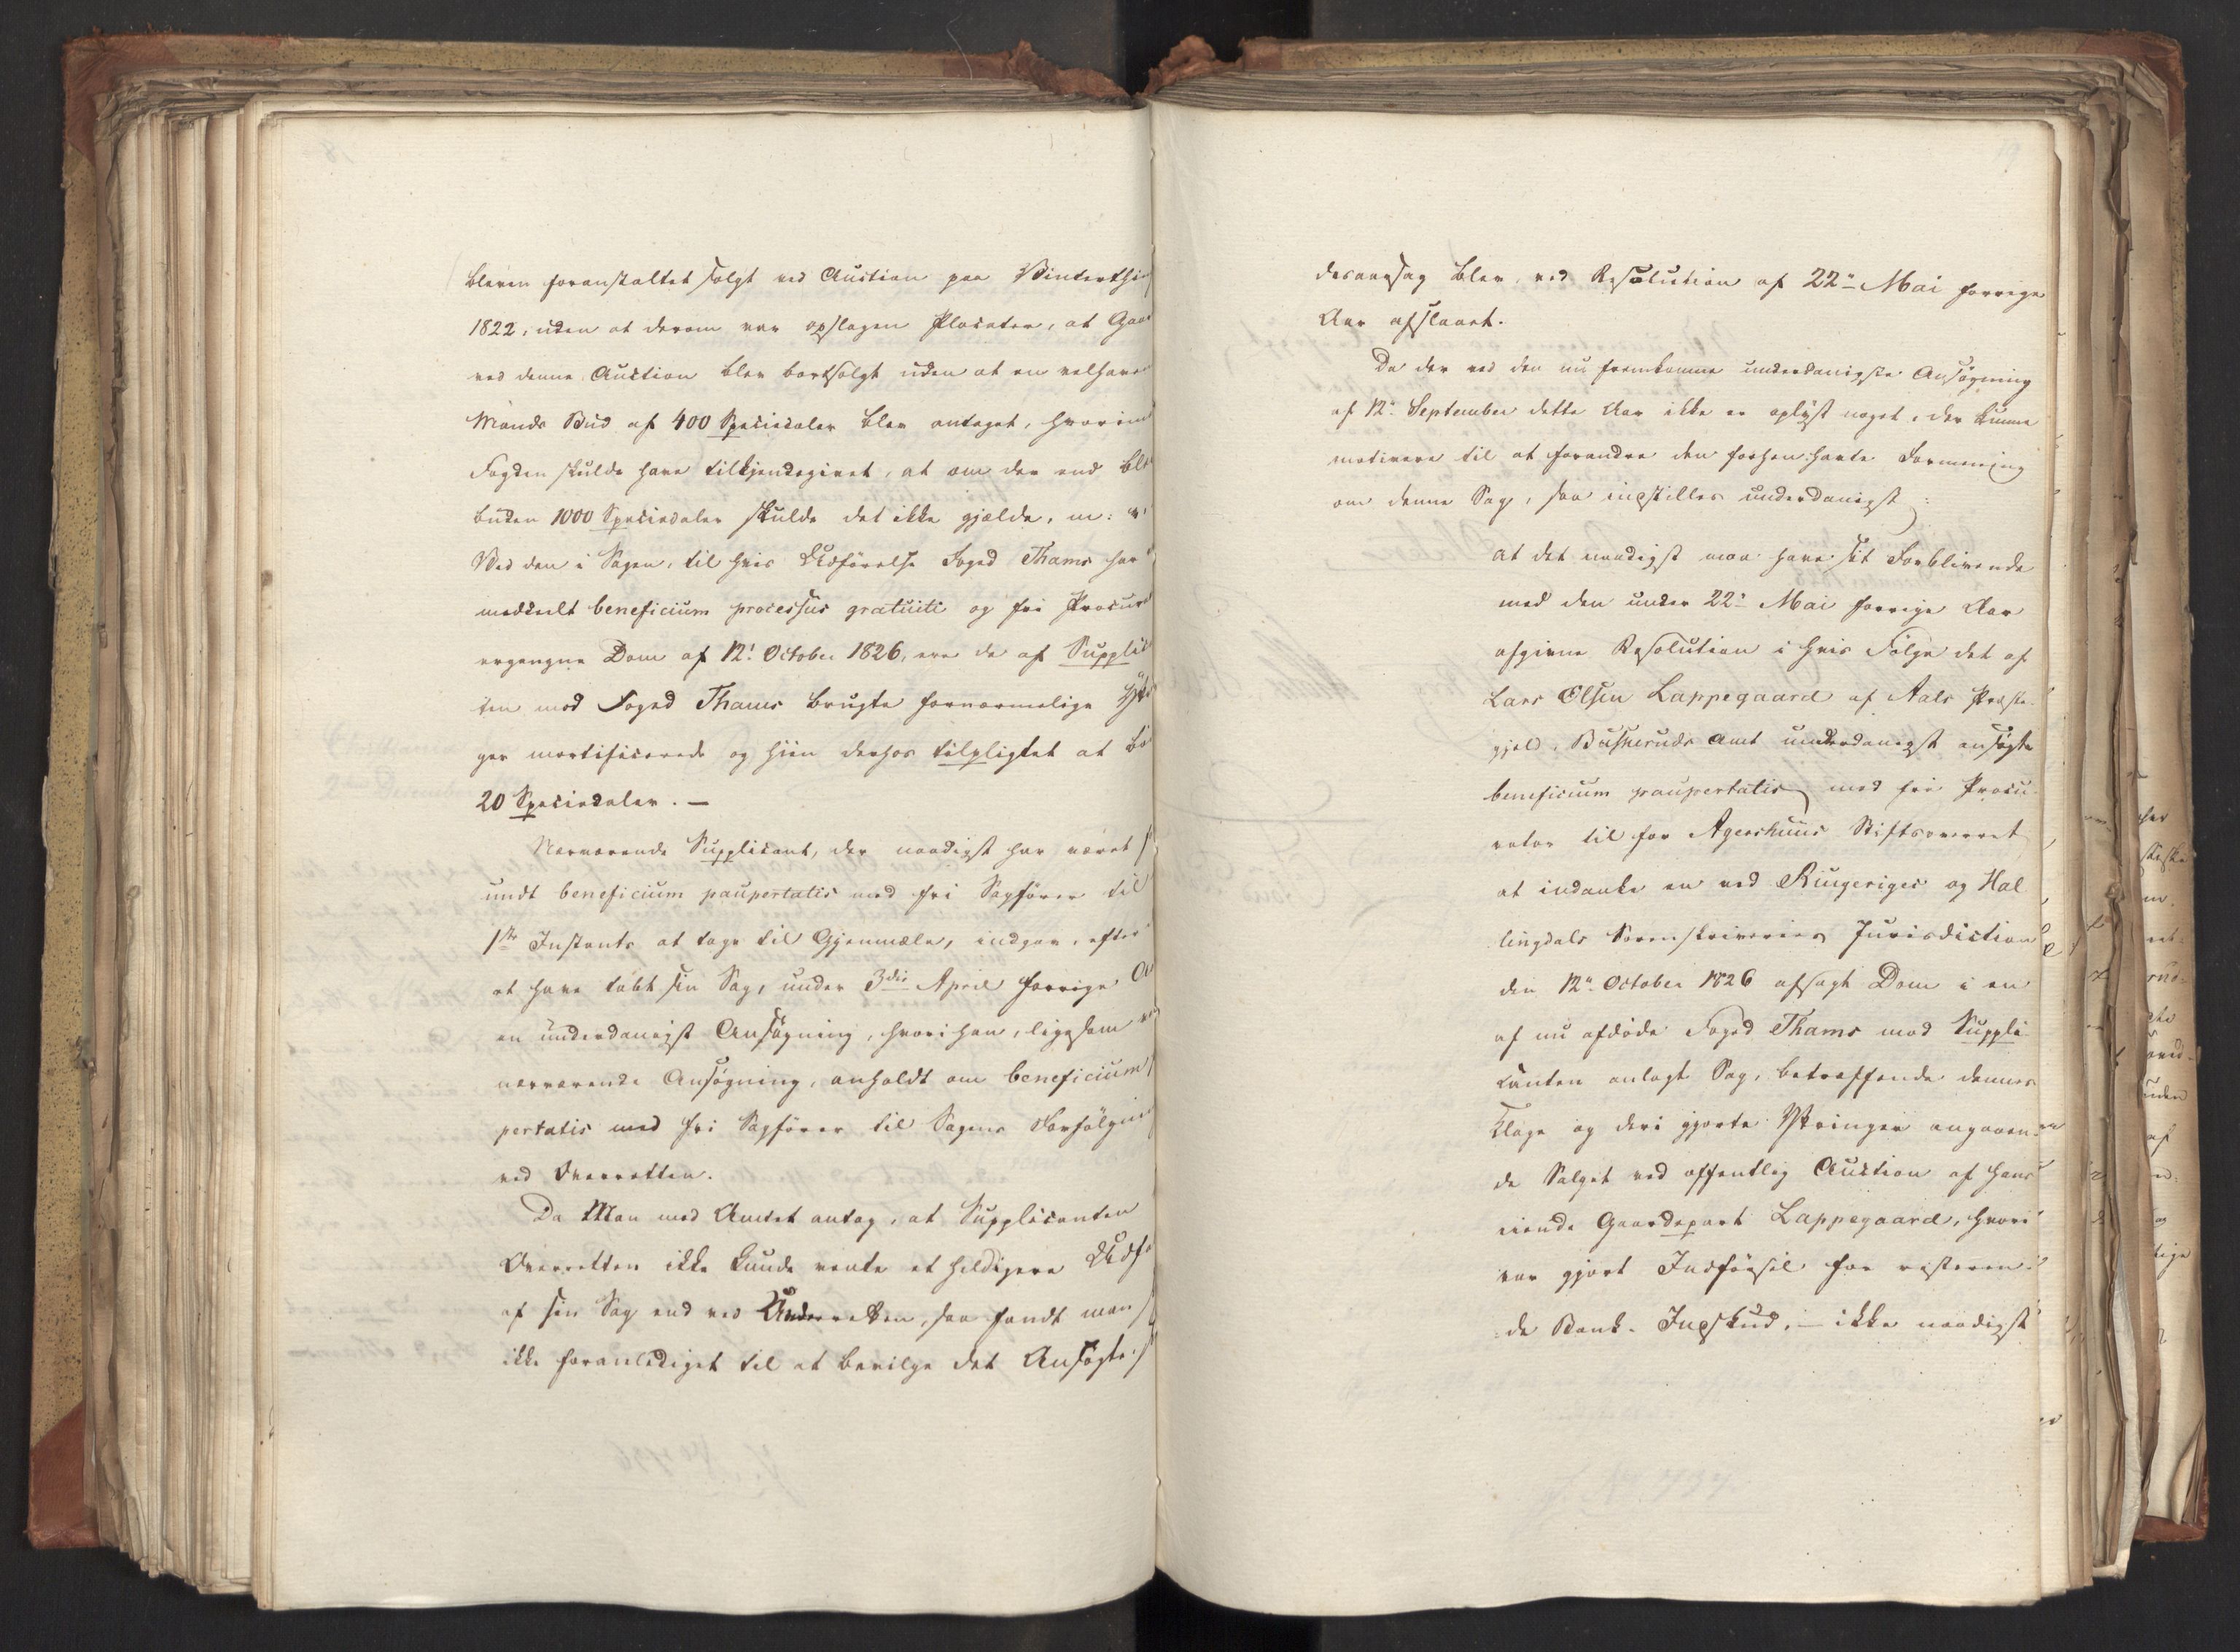 bleven foranstaltet solgt ved Auction paa Vinterthi
1822, uden at derom var opslagen Placater, at Gaar
ved denne Auction blev bortsolgt uden at en velhave
Mands Bud af 400 Speciedaler blev antaget, hvorim
Fogden skulde have tilkjendegivet, at om der end ble
buden 1000 Speciedaler skulde det ikke gjælde, m:
Ved den i Sagen, til hvis Udførelse Foged Thams har
meddeelt beneficium processus gratuiti og fri Procura
ergangne Dom af 12. October 1826, ere de af Supplic
ten mod Foged Thams brugte fornærmelige Ytr
ger mortificerede og hiin derhos tilpligtet at bø
20 Speciedaler. —
Nærværende Supplicant, der naadigst har været
undt beneficium paupertatis med fri Sagfører til
1ste Instants at tage til Gjenmæle, indgav, efter
at have tabt sin Sag, under 3die April forrige Aa
en underdanigst Ansøgning, hvori han, ligesom ved
nærværende Ansøgning, anholdt om beneficium
pertatis med fri Sagfører til Sagens Forfølgni
ved Overretten.
Da Man med Amtet antog, at Supplicanten
Overretten ikke kunde vente et heldigere Udfa
af sin Sag end ved Underretten, saa fandt man
ikke foranlediget til at bevilge det Ansøgte,
desaarsag blev, ved Resolution af 22de Mai forrige
Aar afslaaet.
Da der ved den nu fremkomne underdanigste Ansøgning
af 12te September dette Aar ikke er oplyst noget, der kunne
motivere til at forandre den forhen havte Formening
om denne Sag, saa indstilles underdanigst:
at det naadigst maa have sit Forblivende
med den under 22de Mai forrige Aar
afgivne Resolution i hvis Følge det af
Lars Olsen Lappegaard af Aals Præste-
gjeld, Buskeruds Amt underdanigst ansøgte
beneficium paupertatis med fri Procu-
rator til for Agershuus Stiftsoverret
at indanke en ved Ringeriges og Hal
lingdals Sorenskriveries Jurisdiction
den 12te October 1826 afsagt Dom i en
af nu afdøde Foged Thams mod Suppli
kanten anlagt Sag, betræffende dennes
Klage og deri gjorte Yttringer angaaen-
de Salget ved offentlig Auction af hans
eiende Gaardepart Lappegaard, hvori
var gjort Indførsel for resteren-
de Bank-Indskud, — ikke naadigst